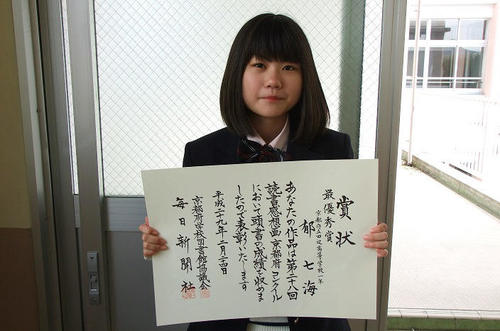 賞状
最優秀賞
郁 七海
あなたの作品は第二十八回
読書感想画京都府コンクール
において頭書の成績を収めま
したので表彰いたします
平成二十九年二月二十四日
京都府学校図書館協議会
毎日新聞社